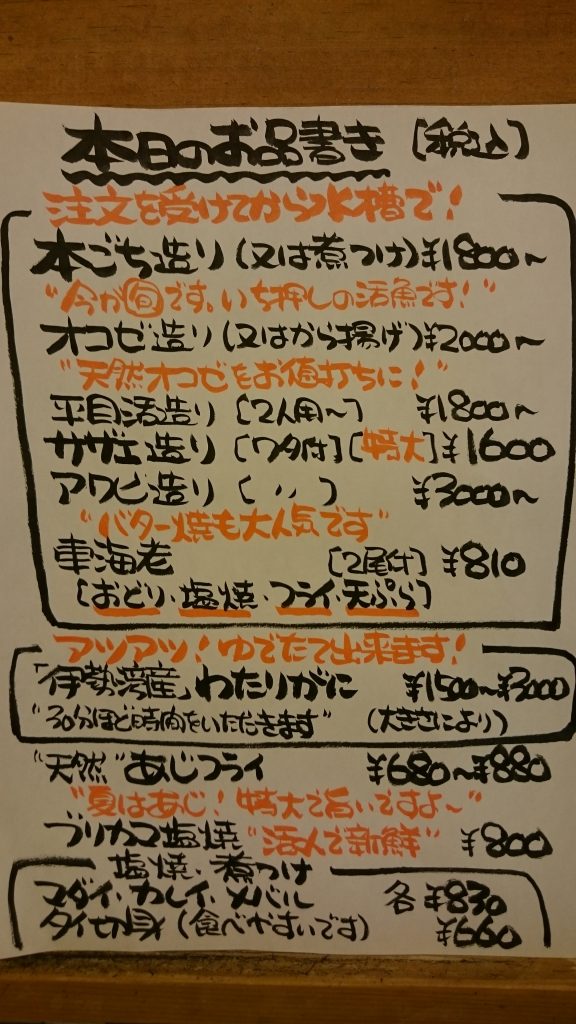 本日のお品書き [税込]
注文を受けてから水槽で!
本ごち造り(又は煮つけ)¥1800〜
"今が旬です。いち押しの活魚です!"
オコゼ造り(又はから揚げ)¥2000〜
"天然オコゼをお値打ちに!"
平目活造り [2人用〜] ¥1800〜
サザエ造り [ワタ付][特大]¥1600
アワビ造り [ 〃 ] ¥3000〜
"バター焼も大人気です"
車海老 [2尾付] ¥810
[おどり・塩焼・フライ・天ぷら]
アツアツ!ゆでたて出来ます!
「伊勢湾産」わたりがに ¥1500〜¥3000
"30分ほど時間をいただきます" (大きさにより)
"天然"あじフライ ¥680〜¥880
"夏はあじ!特大で旨いですよ〜"
ブリカマ塩焼 "活〆で新鮮" ¥800
塩焼・煮つけ
マダイ・カレイ・メバル 各 ¥830
タイ切身(食べやすいです) ¥660